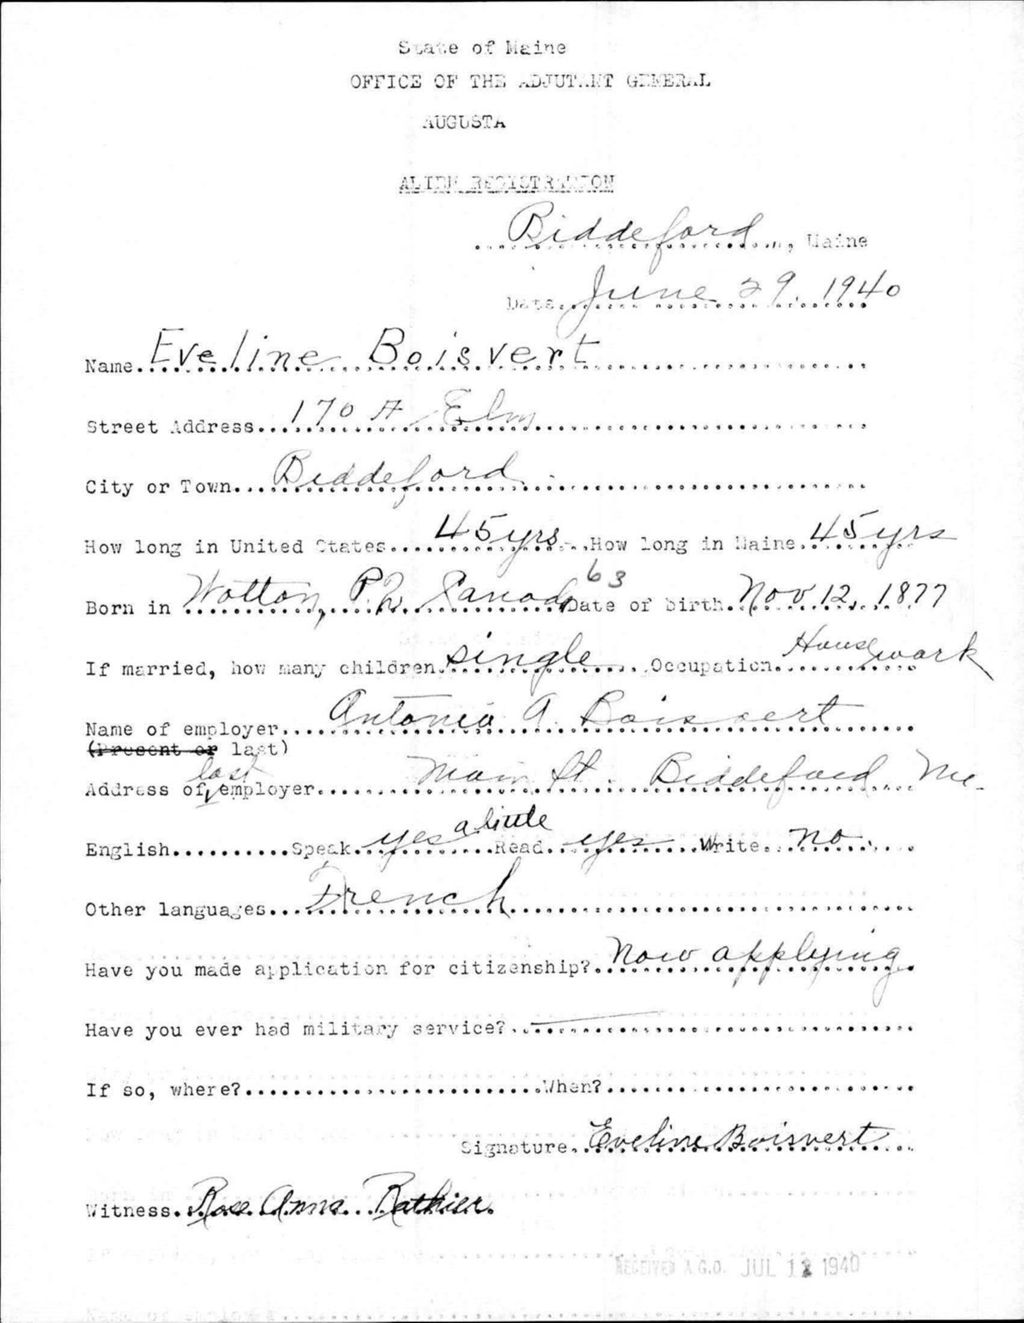 State of Maine
OFFICE OF THE ADJUTANT GENERAL
AUGUSTA
ALIEN REGISTRATION
Biddeford, Maine
Date June 29, 1940
Name Eveline Boisvert
Street Address 170 A Elm
City or Town Biddeford
How long in United States 45 yrs How long in Maine 45 yrs
63
Born in Wotton, P.Q. Canada Date of birth Nov 12, 1877
If married, how many children single Occupation Housework
Name of employer Antonia A. Boisvert
(Present or last)
Address of last employer Main St. Biddeford Me.
English Speak yes a little Read yes Write no
Other languages French
Have you made application for citizenship? Now applying
Have you ever had military service? —
If so, where? When?
Signature Eveline Boisvert
Witness Rose Anna
RECEIVED A.G.O. JUL 12 1940